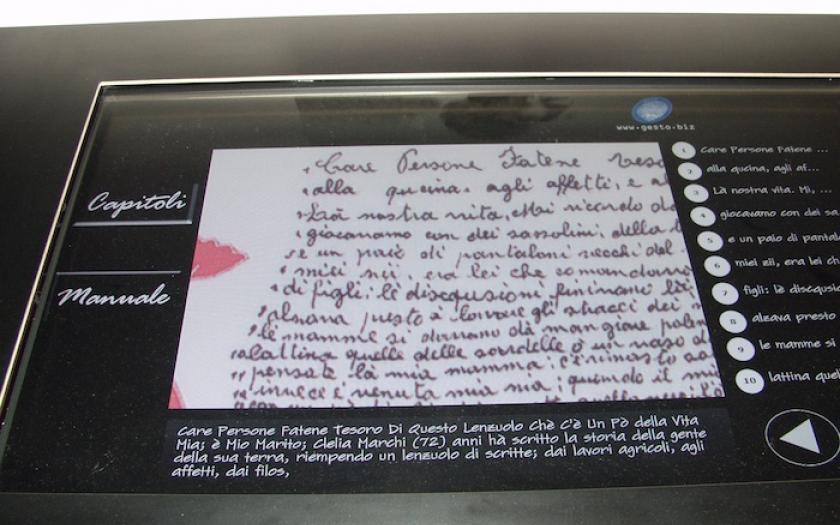 www.gesto.biz
Capitoli
Manuale
Care Persone Fatene Teso
alla qucina, agli affetti, e al
Là nostra vita, Mi, ricordo da
giocavamo con dei sassolini, della t
e un paio di pantaloni vecchi del
miei zii, era lei che comandava
di figli: lè discqusioni finivano li
alzava presto a lavare gli stracci dei
le mamme si davano dà mangiare
lattina quelle delle sorelle o un vaso d
pensate là mia mamma: c'è rimasto so
invece è venuta mia ma; quando il mi
Care Persone Fatene Tesoro Di Questo Lenzuolo Chè C'è Un Pò della Vita
Mia; è Mio Marito; Clelia Marchi (72) anni hà scritto la storia della gente
della sua terra, riempendo un lenzuolo di scritte; dai lavori agricoli, agli
affetti, dai filos,
1 Care Persone Fatene ...
2 alla qucina, agli af...
3 Là nostra vita. Mi, ...
4 giocavamo con dei sa
5 e un paio di pantal
6 miei zii, era lei ch
7 figli: lè discqusi
8 alzava presto
9 le mamme si
10 lattina quel